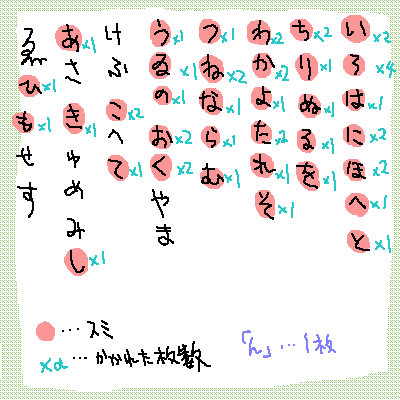 い×2ろ×4は×1に×2ほ×2へ×1と×1
ち×2り×1ぬ×1る×1を×1
わ×2か×2よ×1た×2れ×1そ×1
つ×1ね×2な×1ら×1む×1
う×1ゐ×1の×1お×2く×2やま
けふこ×2えて×1
あ×1さき×1ゆめみし×1
ゑひ×1も×1せす
…スミ
×α…かかれた枚数
「ん」…1枚